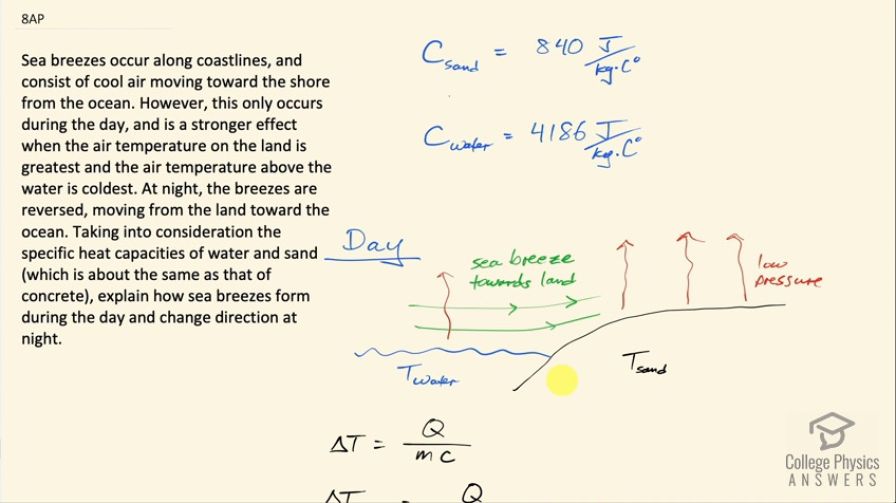 8AP
Sea breezes occur along coastlines, and
consist of cool air moving toward the shore
from the ocean. However, this only occurs
during the day, and is a stronger effect
when the air temperature on the land is
greatest and the air temperature above the
water is coldest. At night, the breezes are
reversed, moving from the land toward the
ocean. Taking into consideration the
specific heat capacities of water and sand
(which is about the same as that of
concrete), explain how sea breezes form
during the day and change direction at
night.
C_sand = 840 J/kg·C°
C_water = 4186 J/kg·C°
Day
sea breeze
towards land
low
pressure
T_water
T_sand
ΔT = Q/mc
ΔT Q
College Physics
ANSWERS